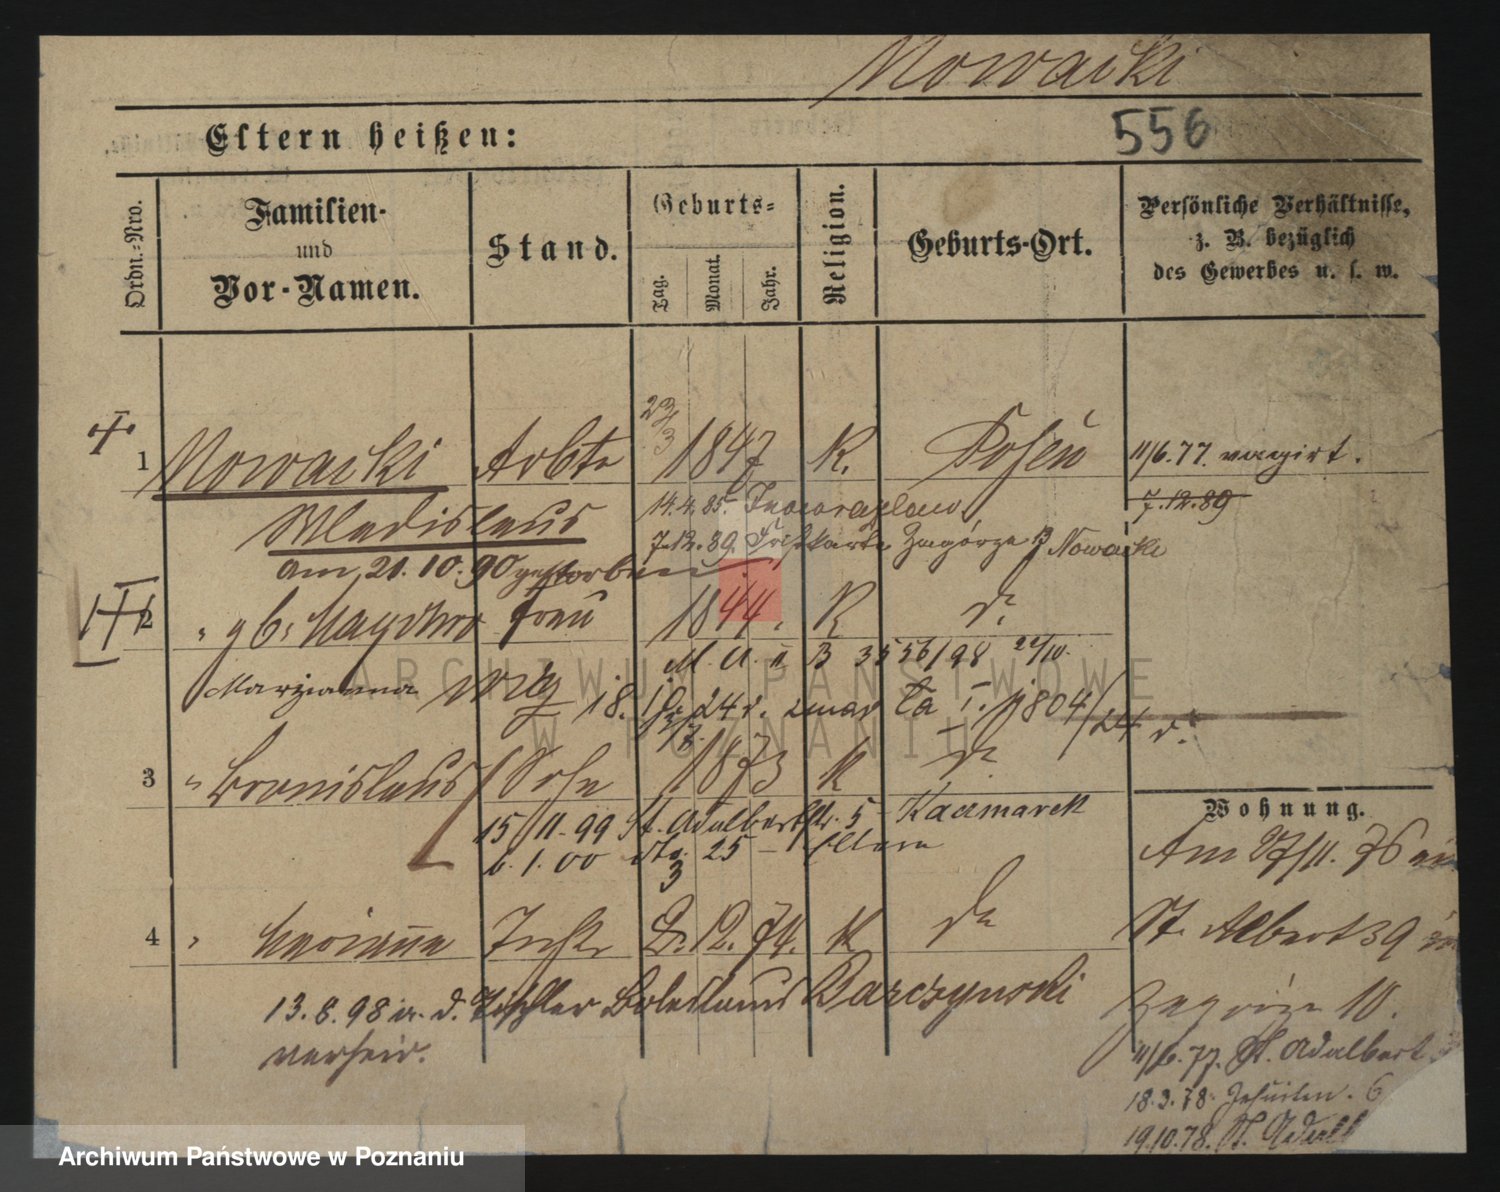 Nowacki
556
Eltern heißen:
Ordn.-Nro.
Familien-
und
Vor-Namen.
Stand.
Geburts-
Tag.
Monat.
Jahr.
Religion.
Geburts-Ort.
Persönliche Verhältnisse,
z. B. bezüglich
des Gewerbes u. s. w.
1 Nowacki Arbtr 23/3 1847 K. Posen 11/6.77.
Wladislaus 14.4.85. Inowrazlaw 7.12.89
7.12.89. Zagórze Nowacki
am 21.10.90 gestorben
2 " gb. Frau 1844. K do
M. U. II B 3556/98 22/10.
Marianna 24 r. zmar Ta I. j 804/24 r.
3 " Bronislaus Sohn 1873 K do
15/11.99 St. Adalbert Nr. 5 - Kaczmarek
6.1.00 dto. 25 - Eltern
3
Wohnung.
Am 27/11. 76
4 " Marianna Tocht. 2. 12. 74. K do
St. Albert 39
13.8.98 a. d. Tischler Boleslaus Barczynski
verheir.
Zagórze 10.
11/6.77. St. Adalbert
18.3.78. Jesuiten. 6
19.10.78. St. Adalb
ARCHIWUM PAŃSTWOWE
W POZNANIU
Archiwum Państwowe w Poznaniu